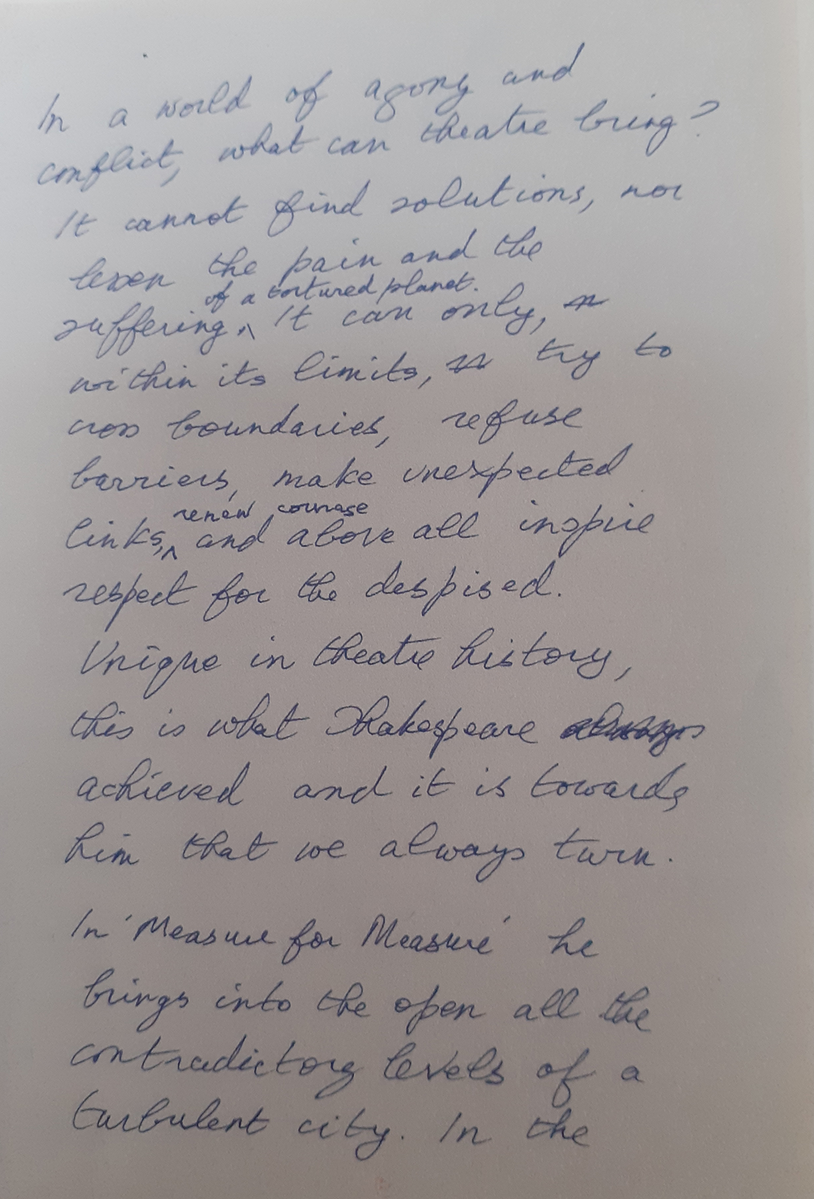 In a world of agony and
conflict, what can theatre bring?
It cannot find solutions, nor
lessen the pain and the
of a tortured planet.
suffering. It can only,
within its limits, try to
cross boundaries, refuse
barriers, make unexpected
renew courage
links, and above all inspire
respect for the despised.
Unique in theatre history,
this is what Shakespeare
achieved and it is towards
him that we always turn.
In 'Measure for Measure' he
brings into the open all the
contradictory levels of a
turbulent city. In the